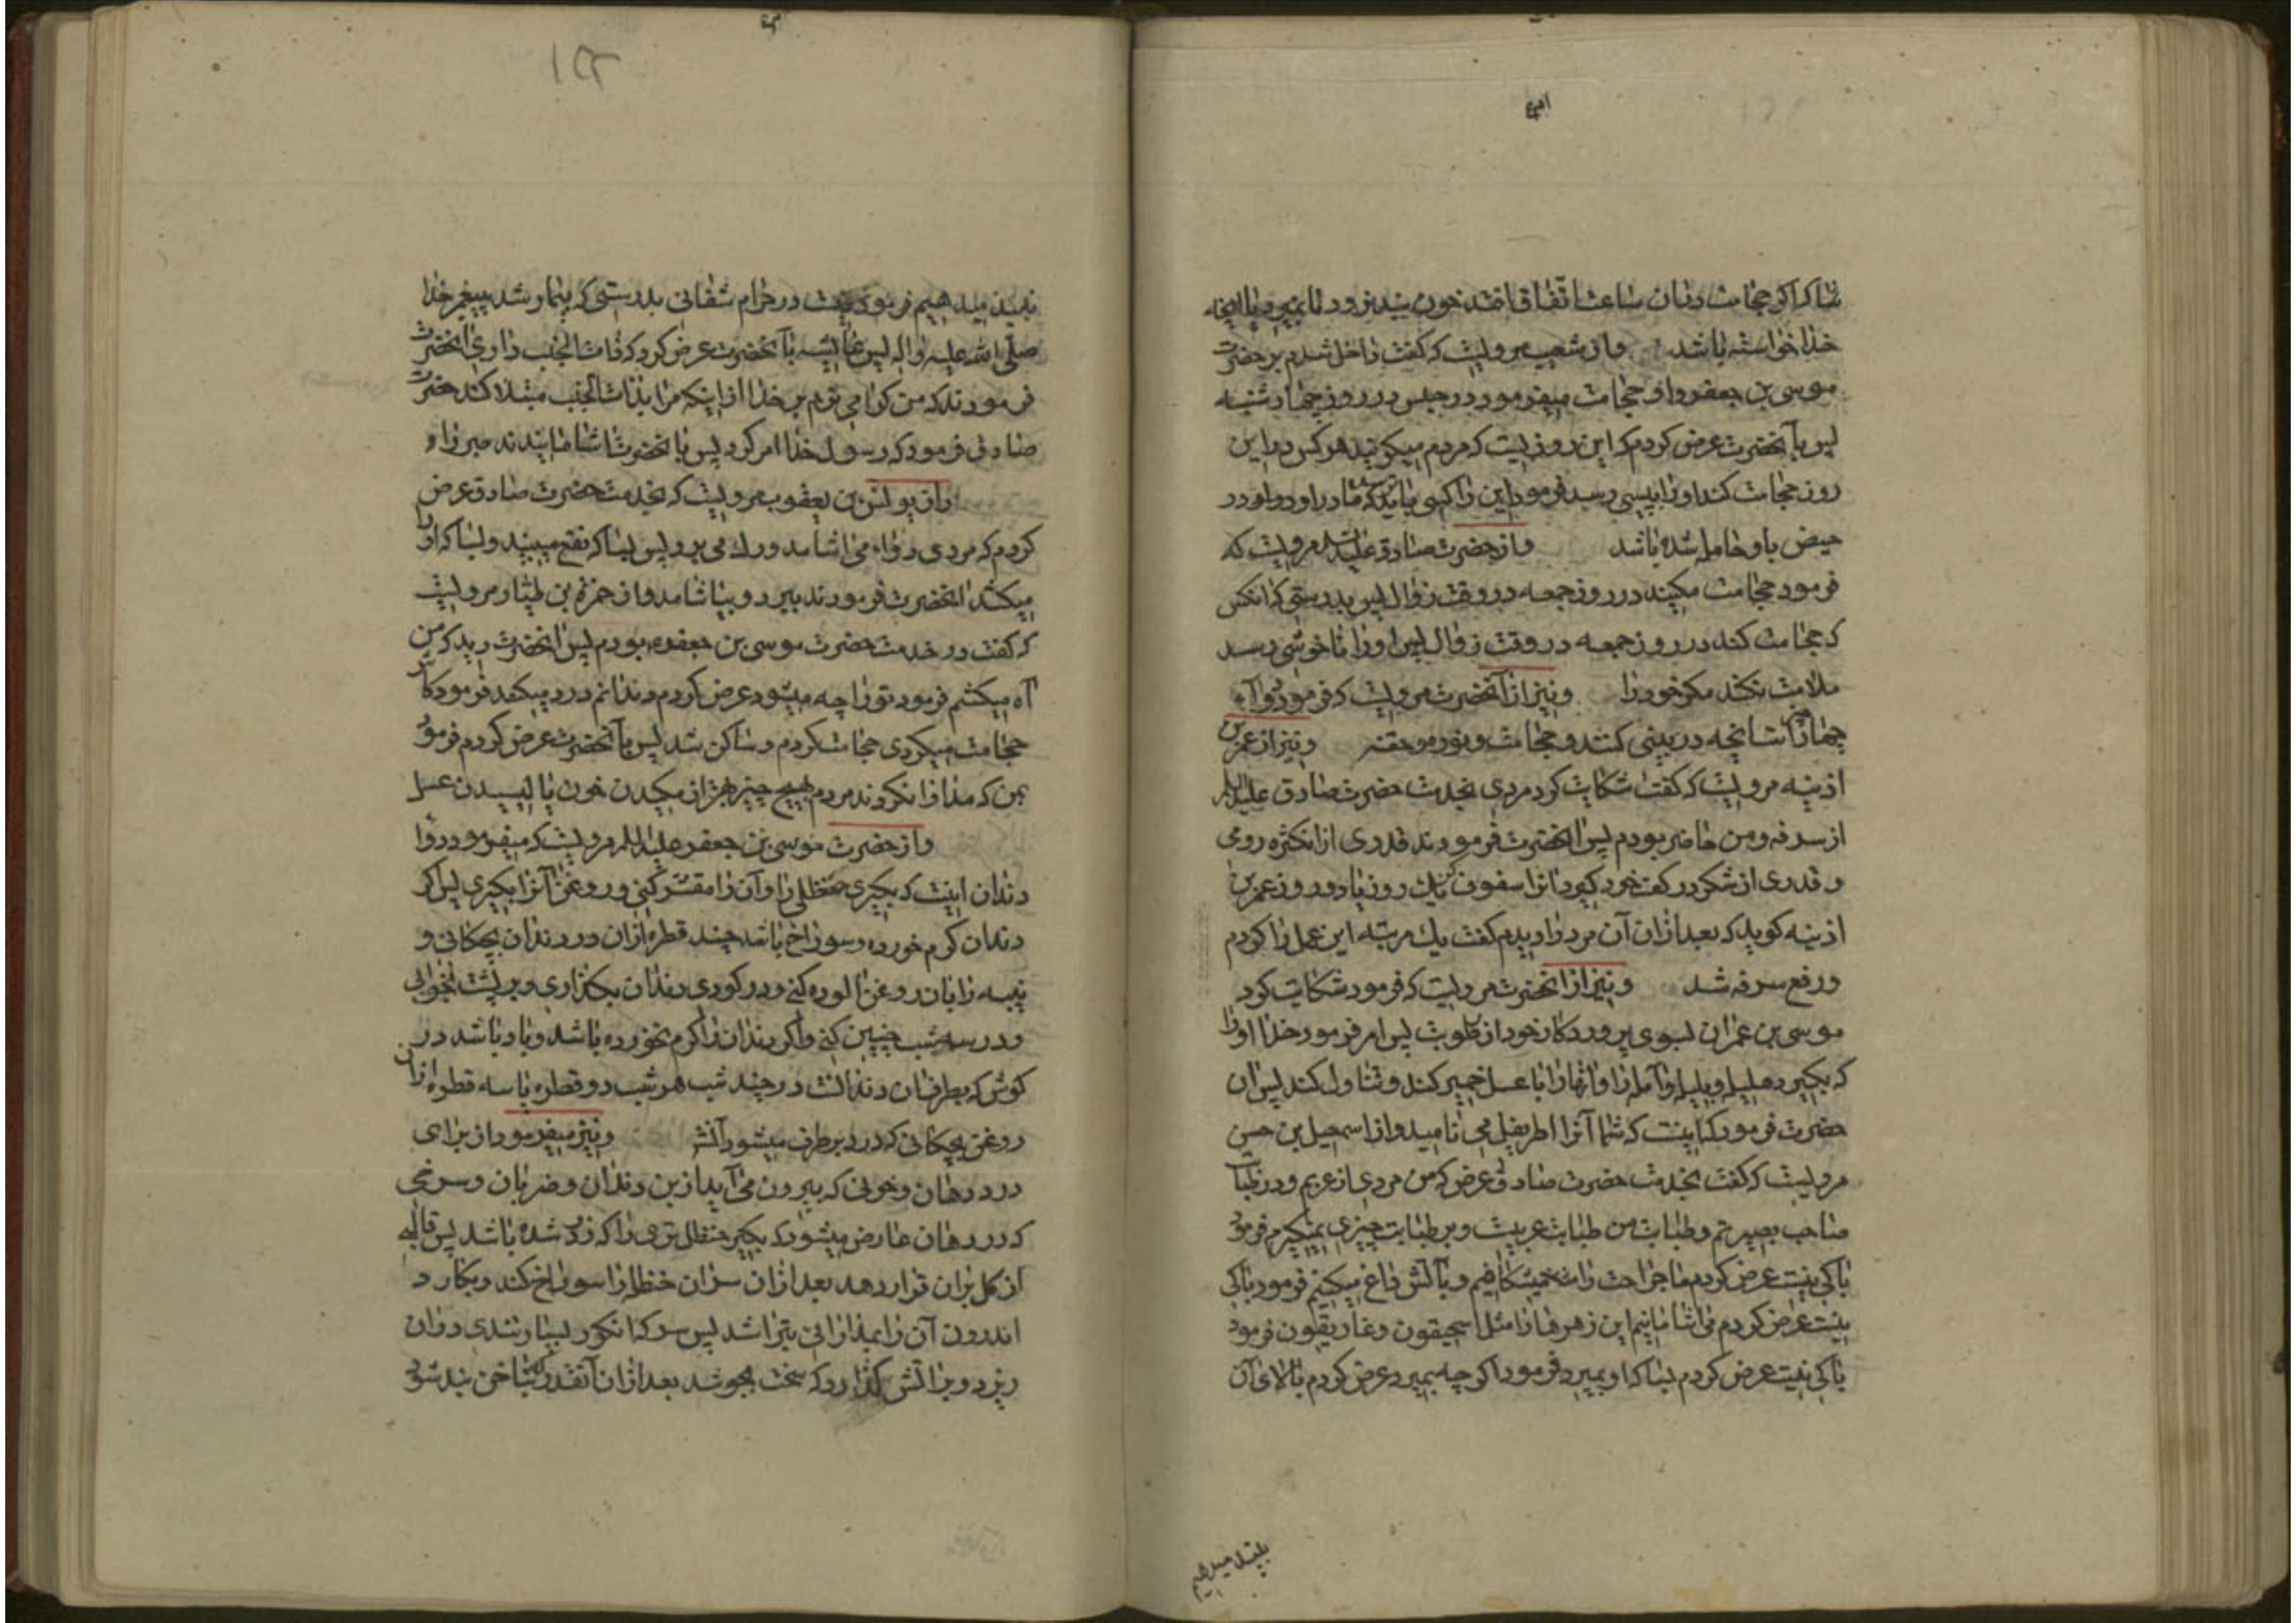 شاکه اگر حجامت در آن ساعت اتفاق افتد خون بند نرود تا بمیرد یا آنچه
خدا خواسته باشد و از شعیب مرویست که گفت داخل شدم بر حضرت
موسی بن جعفر و او حجامت میفرمود در حبس در روز چهارشنبه
پس بآنحضرت عرض کردم که این روزیست که مردم میگویند هر کس در این
روز حجامت کند او را پیسی رسد فرمود این را کسی باید بترسد که مادر او در
حیض باو حامله شده باشد و از حضرت صادق علیه السلام مرویست که
فرمود حجامت مکنید در روز جمعه در وقت زوال پس بدرستی که آنکس
که حجامت کند در روز جمعه در وقت زوال پس او را ناخوشی رسد
ملامت نکند مگر خود را و نیز از آنحضرت مرویست که فرمود دواء
چهار است آنچه در بینی کنند و حجامت و نوره و حقنه و نیز از عمر بن
اذینه مرویست که گفت شکایت کرد مردی بخدمت حضرت صادق علیه السلام
از سرفه و من حاضر بودم پس آنحضرت فرمودند قدری از انکژه رومی
و قدری از شکر در کف خود گیر و آنرا سفوف کن یک روز یا دو روز عمر بن
اذینه گوید که بعد از آن آن مرد را دیدم گفت یک مرتبه این عمل را کردم
و رفع سرفه شد و نیز از آنحضرت مرویست که فرمود شکایت کرد
موسی بن عمران بسوی پروردگار خود از رطوبت پس امر فرمود خدا او را
که بگیرد هلیله و بلیله و آمله را و آنها را با عسل خمیر کند و تناول کند پس آن
حضرت فرمود که اینست که شما آنرا اطریفل می نامید و از اسمعیل بن حسن
مرویست که گفت بخدمت حضرت صادق عرض کردم که من مردی از عربم و در طبابت
صاحب بصیرتم و طبابت من طبابت عربیست و بر طبابت چیزی نمیگیرم فرمود
باکی نیست عرض کردم ما جراحت را میشکافیم و بآتش داغ میکنیم فرمود باکی
نیست عرض کردم می آشامانیم این زهرها را مثل اسمحیقون و غاریقون فرمود
باکی نیست عرض کردم بسا که او بمیرد فرمود اگر چه بمیرد عرض کردم بالای آن
نبیذ میدهیم
۱۵۲
نبیذ میدهیم فرمود نیست در حرام شفائی بدرستی که بیمار شد پیغمبر خدا
صلی الله علیه و آله پس عایشه بآنحضرت عرض کرد که ذات الجنب داری آنحضرت
فرمودند که من گرامی ترم بر خدا از اینکه مرا بذات الجنب مبتلا کند حضرت
صادق فرمود که رسول خدا امر کرد پس بآنحضرت آشامانیدند صبر را و
و از یونس بن یعقوب مرویست که بخدمت حضرت صادق عرض
کردم که مردی دواء می آشامد و رگ می برد پس بسا که نفع میبیند و بسا که او را
میکشد آنحضرت فرمودند ببرد و بیاشامد و از حمزة بن طیار مرویست
که گفت در خدمت حضرت موسی بن جعفر بودم پس آنحضرت دید که من
آه میکشم فرمود تو را چه میشود عرض کردم دندانم درد میکند فرمود کاش
حجامت میکردی حجامت کردم و ساکن شد پس بآنحضرت عرض کردم فرمود
بمن که مداوا نکردند مردم بهیچ چیز بهتر از مکیدن خون یا لیسیدن عسل
و از حضرت موسی بن جعفر علیه السلام مرویست که میفرمود دوا
دندان اینست که بگیری حنظلی را و آن را مقشر کنی و روغن آنرا بگیری پس اگر
دندان کرم خورده و سوراخ باشد چند قطره از آن در دندان بچکانی و
پنبه را بآن روغن آلوده کنی و در گودی دندان بگذاری و بر پشت بخوابی
و در سه شب چنین کنی و اگر دندان را کرم نخورده باشد و باد باشد در
گوش که بطرف آن دندانست در چند شب هر شب دو قطره یا سه قطره از آن
روغن بچکانی که درد برطرف میشود آنشاء و نیز میفرمود از برای
درد دهان و خونی که بیرون می آید از بن دندان و ضربان و سرخی
که در دهان عارض میشود که بگیر حنظل تری را که زرد شده باشد پس قالبی
از گل بر آن قرار دهد بعد از آن سر آن حنظل را سوراخ کند و بکارد
اندرون آن را بمدارائی بتراشد پس سرکه انگور بسیار تندی در آن
ریزد و بر آتش گذارد که سخت بجوشد بعد از آن آنقدر که بناخن بند شود